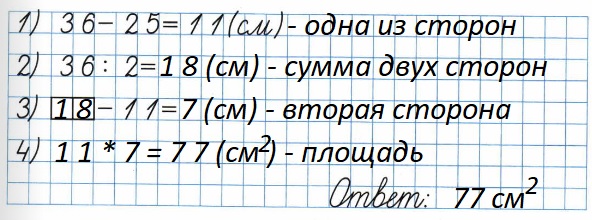 1) 36 - 25 = 11 (см) - одна из сторон
2) 36 : 2 = 18 (см) - сумма двух сторон
3) 18 - 11 = 7 (см) - вторая сторона
4) 11 * 7 = 77 (см²) - площадь
Ответ: 77 см²